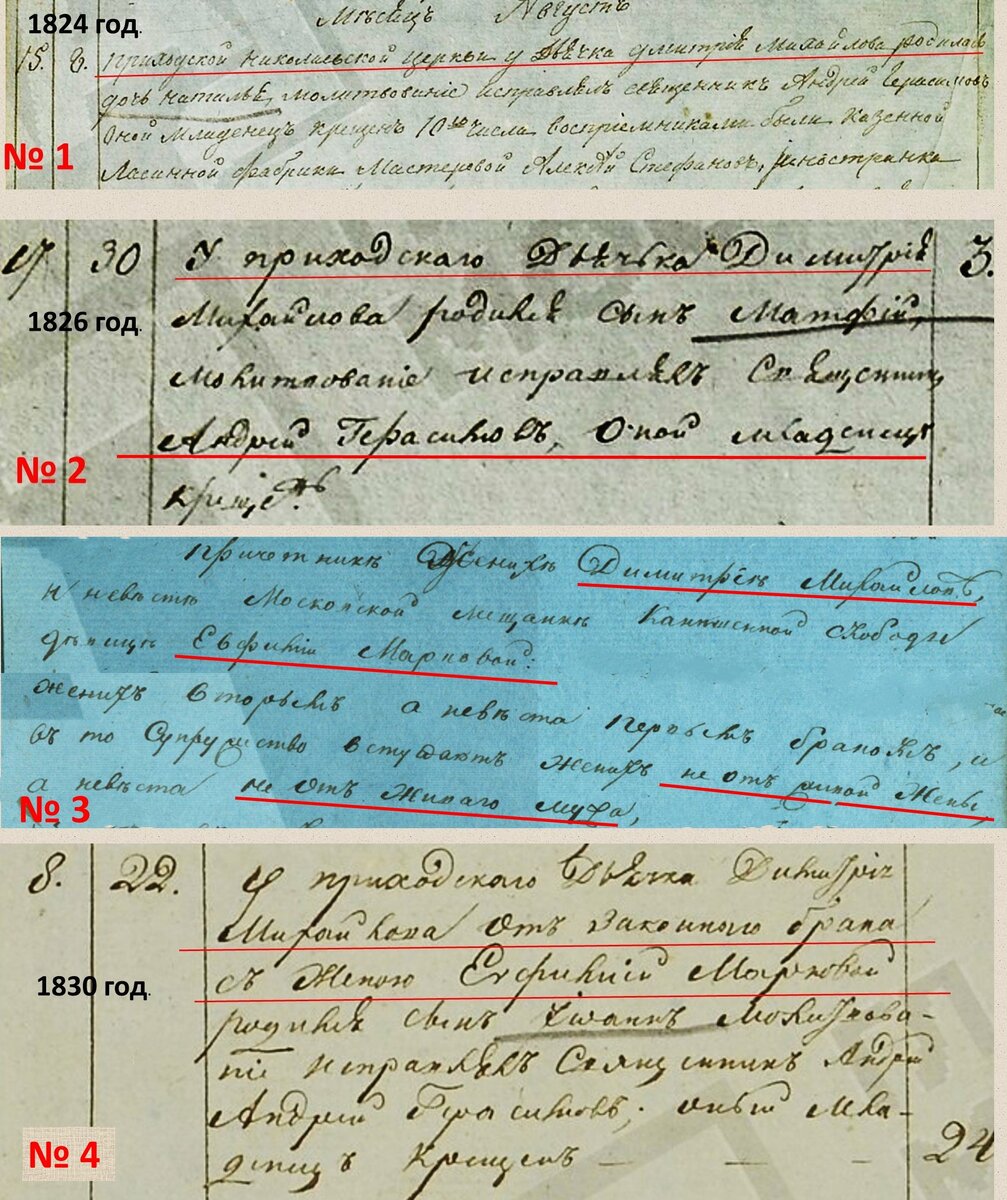 1824 год.
Месяцъ Августъ
15. 8. приходской Николаевской церкви у дьячка Дмитрія Михайлова родилась
дочь Наталья, молитвованіе исправлялъ священникъ Андрей Герасимовъ
оной младенецъ крещенъ 10го числа восприемниками были казенной
№ 1
Лосинной фабрики мастеровой Алексѣй Стефановъ, иностранка
17 30 У приходскаго Дьячька Димитрія 3.
1826 год.
Михайлова родился сынъ Матфій,
молитвованіе исправлялъ Священникъ
Андрей Герасимовъ, оной младенецъ
№ 2
крещенъ.
причетникъ женихъ Димитрій Михайловъ,
и невѣстѣ Московской мещанкѣ Кадашевской слободы
дѣвицѣ Евфиміи Марковой:
женихъ вторымъ а невѣста первымъ бракомъ, и
въ то супружество вступаютъ женихъ не отъ живой жены,
а невѣста не отъ живаго мужа,
№ 3
8. 22. У приходскаго Дьячка Димитрія
Михайлова отъ законнаго брака
1830 год.
съ женою Евфиміей Марковой
родился сынъ Іоаннъ молитвова-
ніе исправлялъ Священникъ Андрей
Андрей Герасимовъ, оный мла-
№ 4
денецъ крещенъ — — — 24